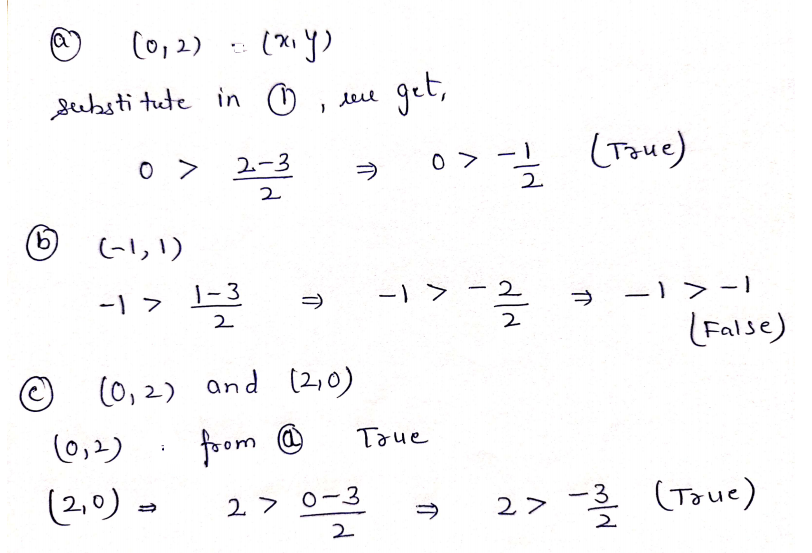 ⓐ (0,2) = (x,y)
substitute in ①, we get,
0 > 2-3/2 ⇒ 0 > -1/2 (True)
ⓑ (-1,1)
-1 > 1-3/2 ⇒ -1 > -2/2 ⇒ -1 > -1
(False)
ⓒ (0,2) and (2,0)
(0,2) : from ⓐ True
(2,0) ⇒ 2 > 0-3/2 ⇒ 2 > -3/2 (True)